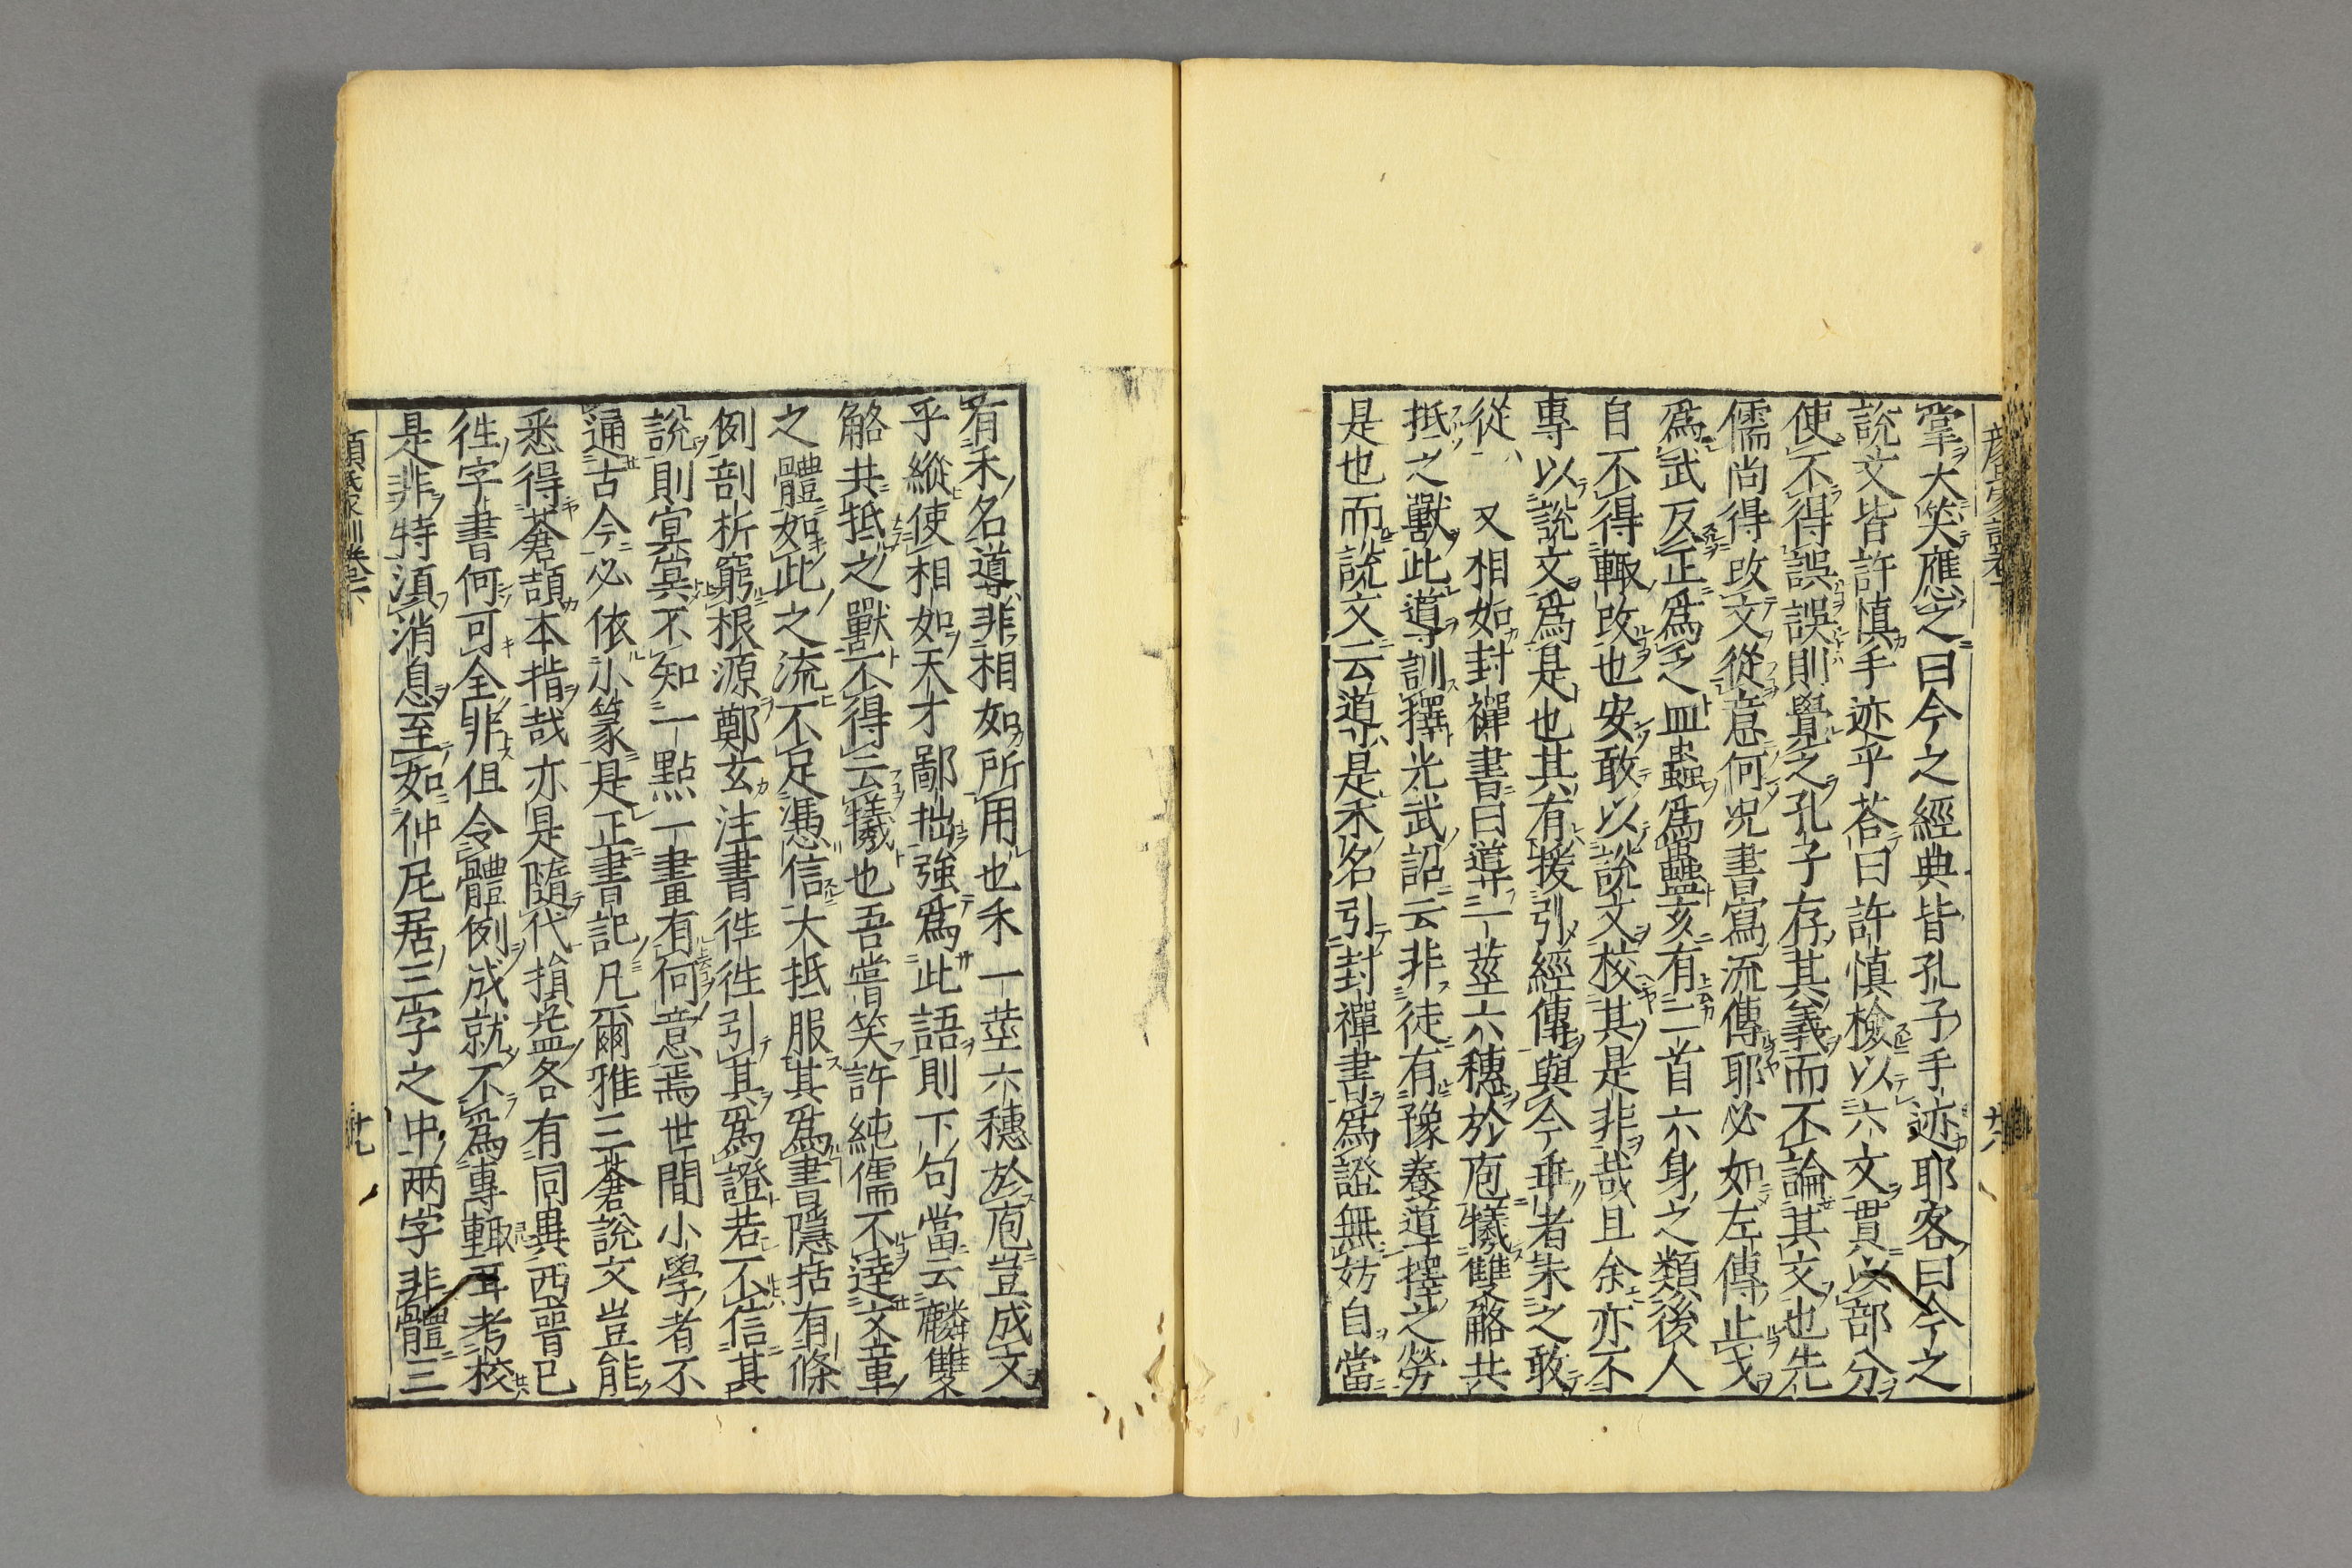 掌大笑應之曰今之經典皆孔子手迹耶客曰今之
說文皆許慎手迹乎荅曰許慎檢以六文貫以部分
使不得誤誤則覺之孔子存其義而不論其文也先
儒尚得改文從意何况書寫流傳耶必如左傳止戈
爲武反正爲乏皿蟲爲蠱亥有二首六身之類後人
自不得輙改也安敢以說文校其是非哉且余亦不
專以說文爲是也其有援引經傳與今乖者未之敢
從又相如封禪書曰導一莖六穗於庖犧雙觡共
抵之獸此導訓擇光武詔云非徒有豫養導擇之勞
是也而說文云導是禾名引封禪書爲證無妨自當
有禾名導非相如所用也禾一莖六穗於庖豈成文
乎縱使相如天才鄙拙強爲此語則下句當云麟雙
觡共抵之獸不得云犧也吾嘗笑許純儒不達文章
之體如此之流不足憑信大抵服其爲書隱括有條
例剖析窮根源鄭玄注書徃徃引其爲證若不信其
說則冥冥不知一點一畫有何意焉世間小學者不
通古今必依小篆是正書記凡爾雅三蒼說文豈能
悉得蒼頡本指哉亦是隨代損益各有同異西晉已
徃字書何可全非但令體例成就不爲專輙耳考校
是非特湏消息至如仲尼居三字之中兩字非體三
顏氏家訓卷下
十九